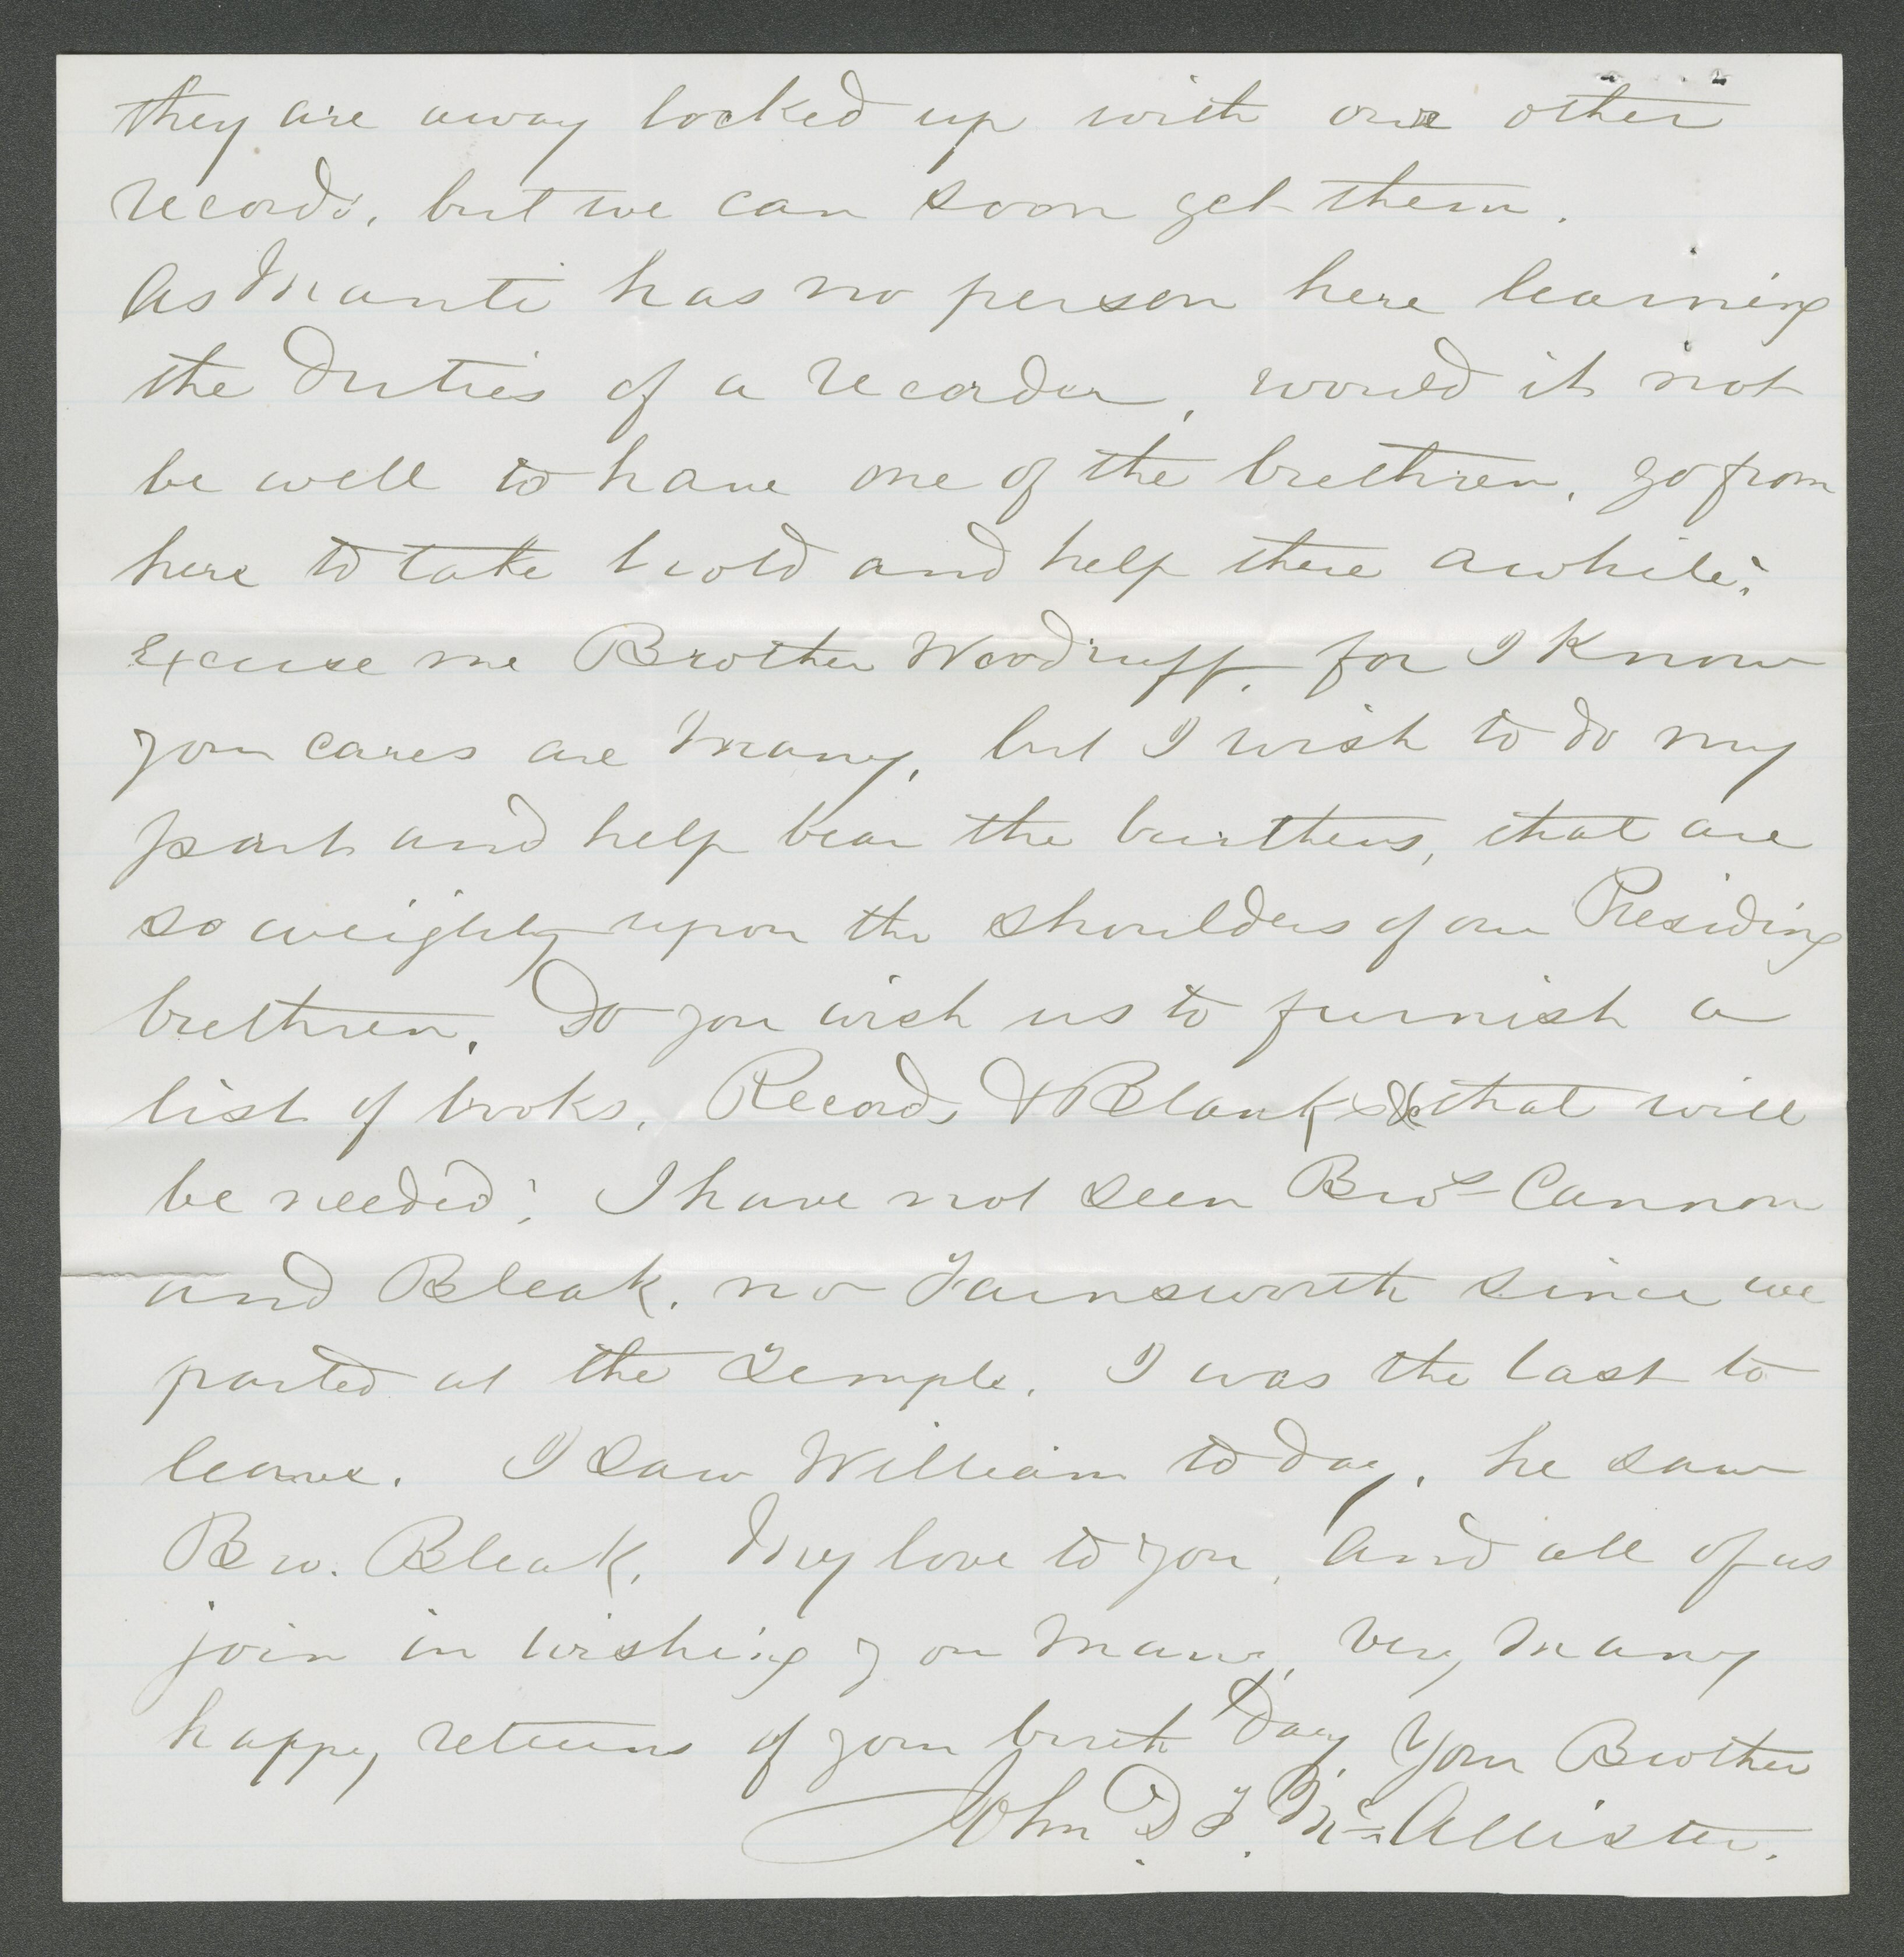 they are away locked up with our other
records, but we can soon get them.
As Manti has no person here learning
the duties of a recorder, would it not
be well to have one of the brethren, go from
here to take hold and help there awhile?
Excuse me Brother Woodruff, for I know
your cares are many, but I wish to do my
part and help bear the burthens, that are
so weighty upon the shoulders of our Presiding
brethren. Do you wish us to furnish a
list of books, Records & Blanks &c that will
be needed? I have not seen Bros Cannon
and Bleak, nor Farnsworth since we
parted at the Temple. I was the last to
leave. I saw William to day, he saw
Bro. Bleak. My love to you, and all of us
join in wishing you many, very many
happy returns of your birth Day Your Brother
John D. T. McAllister.